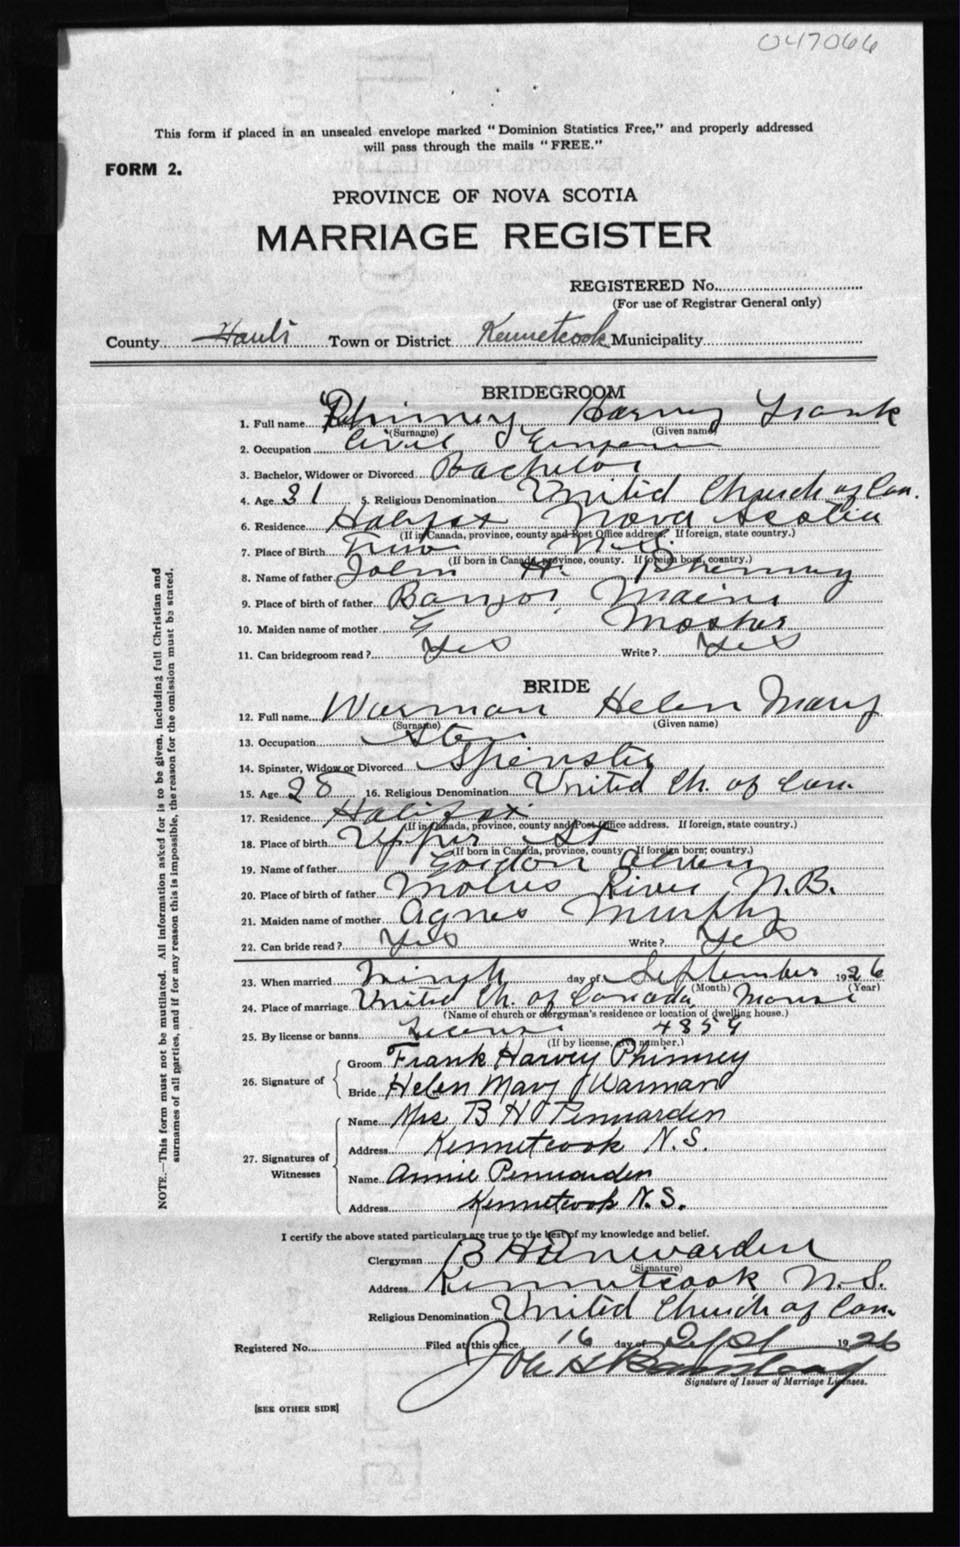 047066
This form if placed in an unsealed envelope marked "Dominion Statistics Free," and properly addressed
will pass through the mails "FREE."
FORM 2.
PROVINCE OF NOVA SCOTIA
MARRIAGE REGISTER
REGISTERED No.
(For use of Registrar General only)
County Hants Town or District Kennetcook Municipality
BRIDEGROOM
1. Full name Phinney Harvey Frank
(Surname) (Given name)
2. Occupation Civil Engineer
3. Bachelor, Widower or Divorced Bachelor
4. Age 31 5. Religious Denomination United Church of Can.
6. Residence Halifax Nova Scotia
(If in Canada, province, county and Post Office address. If foreign, state country.)
7. Place of Birth Truro N.S.
(If born in Canada, province, county. If foreign born, country.)
8. Name of father John H. Phinney
9. Place of birth of father Bangor, Maine
10. Maiden name of mother Mosher
11. Can bridegroom read? Yes Write? Yes
BRIDE
12. Full name Warman Helen Mary
(Surname) (Given name)
13. Occupation
14. Spinster, Widow or Divorced Spinster
15. Age 28 16. Religious Denomination United Ch. of Can.
17. Residence Halifax
(If in Canada, province, county and Post Office address. If foreign, state country.)
18. Place of birth Upper St
(If born in Canada, province, county. If foreign born; country.)
19. Name of father Gordon
20. Place of birth of father Molus River N.B.
21. Maiden name of mother Agnes Murphy
22. Can bride read? Yes Write? Yes
23. When married Ninth day of September 1926
(Month) (Year)
24. Place of marriage United Ch. of Canada Manse
(Name of church or clergyman's residence or location of dwelling house.)
25. By license or banns License 4859
(If by license, give number.)
26. Signature of
Groom Frank Harvey Phinney
Bride Helen Mary Warman
27. Signatures of Witnesses
Name Mrs B H Penwarden
Address Kennetcook N.S.
Name Annie Penwarden
Address Kennetcook N.S.
I certify the above stated particulars are true to the best of my knowledge and belief.
Clergyman B H Penwarden
(Signature)
Address Kennetcook N.S.
Religious Denomination United Church of Can.
Registered No. Filed at this office 16 day of Sept 1926
Signature of Issuer of Marriage Licenses.
[SEE OTHER SIDE]
NOTE.—This form must not be mutilated. All information asked for is to be given, including full Christian and
surnames of all parties, and if for any reason this is impossible, the reason for the omission must be stated.